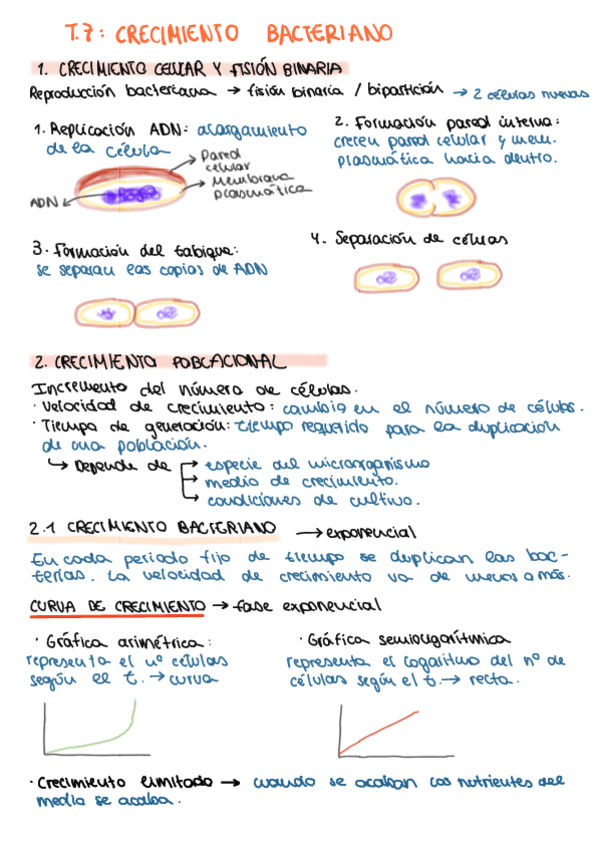 T.7: CRECIMIENTO BACTERIANO
1. CRECIMIENTO CELULAR Y FISIÓN BINARIA
Reproducción bacteriana → fisión binaria / bipartición → 2 células nuevas
1. Replicación ADN: alargamiento
de la célula
Pared
celular
Membrana
plasmática
ADN
2. Formación pared interna:
crecen pared celular y mem.
plasmática hacia dentro.
3. Formación del tabique:
se separan las copias de ADN
4. Separación de células
2. CRECIMIENTO POBLACIONAL
Incremento del número de células.
· Velocidad de crecimiento: cambio en el número de células.
· Tiempo de generación: tiempo requerido para la duplicación
de una población.
↳ Depende de → especie del microorganismo
→ medio de crecimiento.
→ condiciones de cultivo.
2.1 CRECIMIENTO BACTERIANO → exponencial
En cada periodo fijo de tiempo se duplican las bac-
terias. La velocidad de crecimiento va de menos a más.
CURVA DE CRECIMIENTO → fase exponencial
· Gráfica arimétrica:
representa el nº células
según el t. → curva
· Gráfica semilogarítmica
representa el logaritmo del nº de
células según el t. → recta.
· Crecimiento limitado → cuando se acaban los nutrientes del
medio se acaba.